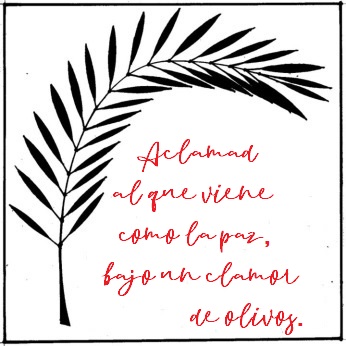 Aclamad
al que viene
como la paz,
bajo un clamor
de olivos.